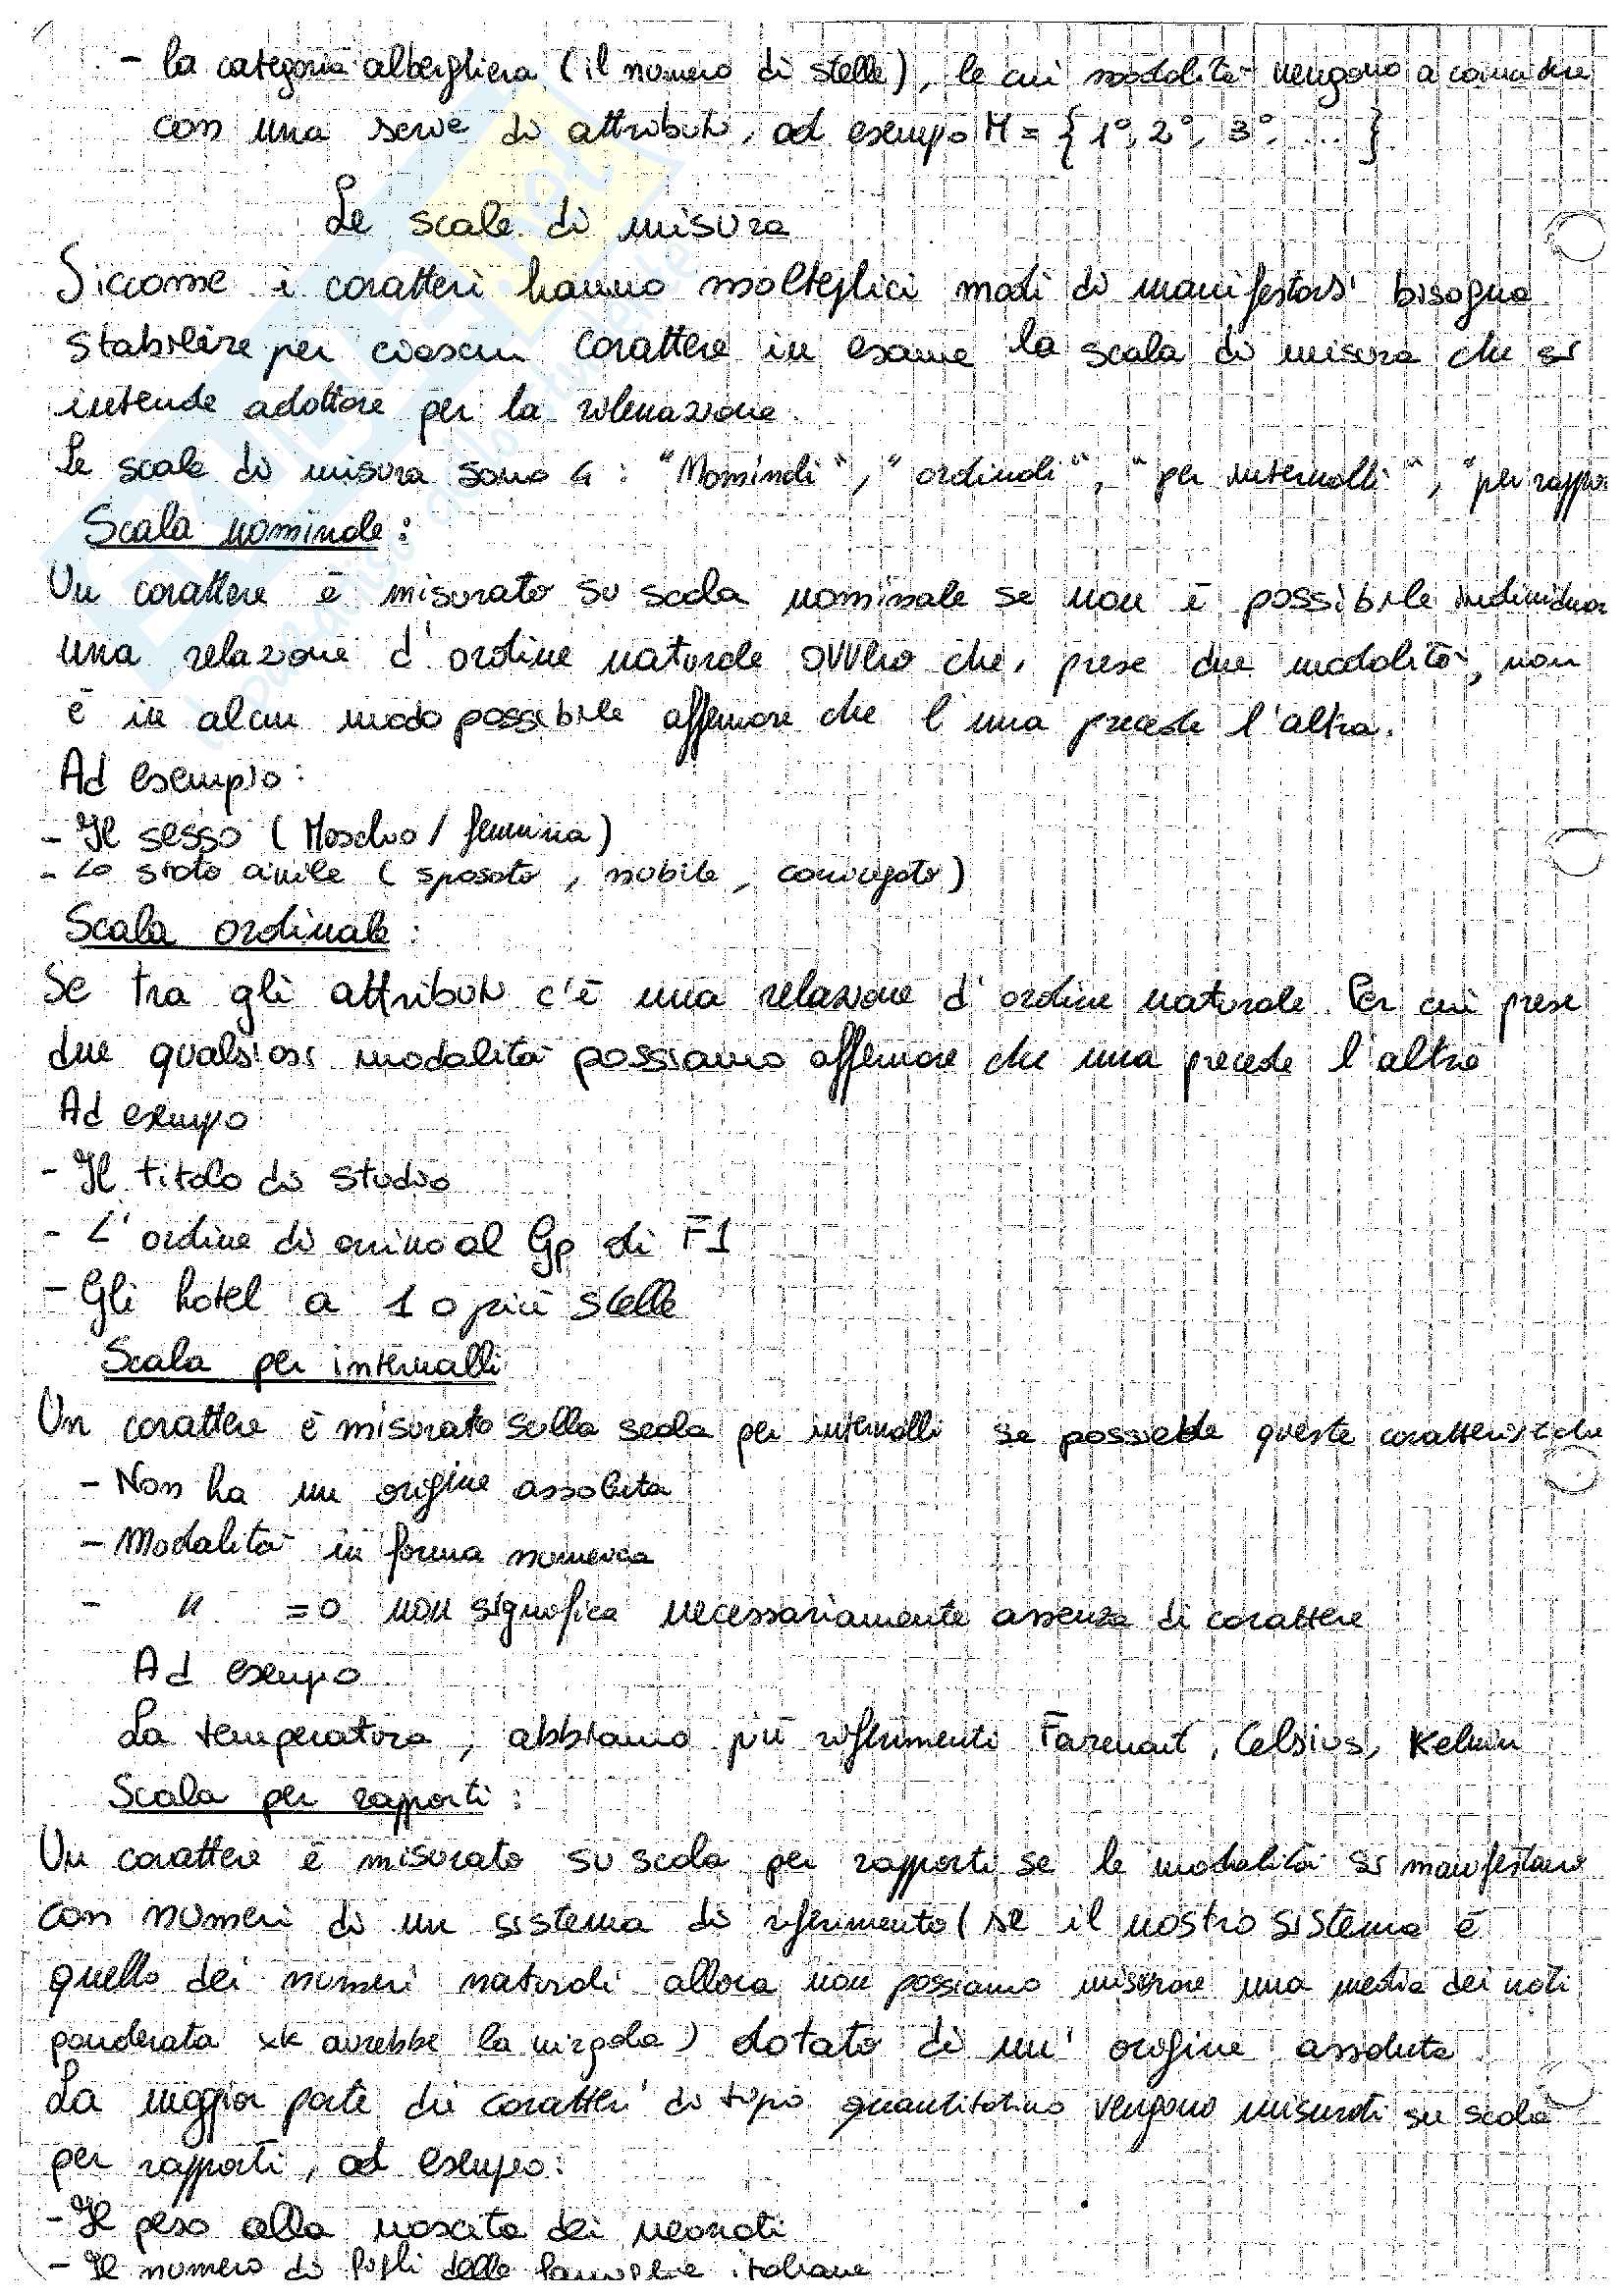 - la categoria alberghiera (il numero di stelle), le cui modalità vengono a coincidere
con una serie di attributi, ad esempio M = { 1°, 2°, 3°, ... }
Le scale di misura
Siccome i caratteri hanno molteplici modi di manifestarsi bisogna
stabilire per ciascun carattere in esame la scala di misura che si
intende adottare per la rilevazione.
Le scale di misura sono 4 : "Nominali", "ordinali", "per intervalli", "per rappor
Scala nominale :
Un carattere è misurato su scala nominale se non è possibile individuar
una relazione d'ordine naturale ovvero che, prese due modalità, non
è in alcun modo possibile affermare che l'una precede l'altra.
Ad esempio :
- Il sesso ( Maschio / femmina )
- Lo stato civile ( sposato , nubile , coniugato )
Scala ordinale :
Se tra gli attributi c'è una relazione d'ordine naturale. Per cui prese
due qualsiasi modalità possiamo affermare che una precede l'altra
Ad esempio
- Il titolo di studio
- L'ordine di arrivo al Gp di F1
- Gli hotel a 1 o più stelle
Scala per intervalli
Un carattere è misurato sulla scala per intervalli se possiede queste caratteristiche
- Non ha un origine assoluta
- Modalità in forma numerica
- " =0 non significa necessariamente assenza di carattere
Ad esempio
La temperatura , abbiamo più riferimenti Farenait, Celsius, Kelvin
Scala per rapporti :
Un carattere è misurato su scala per rapporti se le modalità si manifestano
con numeri di un sistema di riferimento ( se il nostro sistema è
quello dei numeri naturali allora non possiamo misurare una media dei voti
ponderata xk avrebbe la virgola ) dotato di un' origine assoluta.
La maggior parte dei caratteri di tipo quantitativo vengono misurati su scala
per rapporti, ad esempio :
- Il peso alla nascita dei neonati
- Il numero di figli delle famiglie italiane